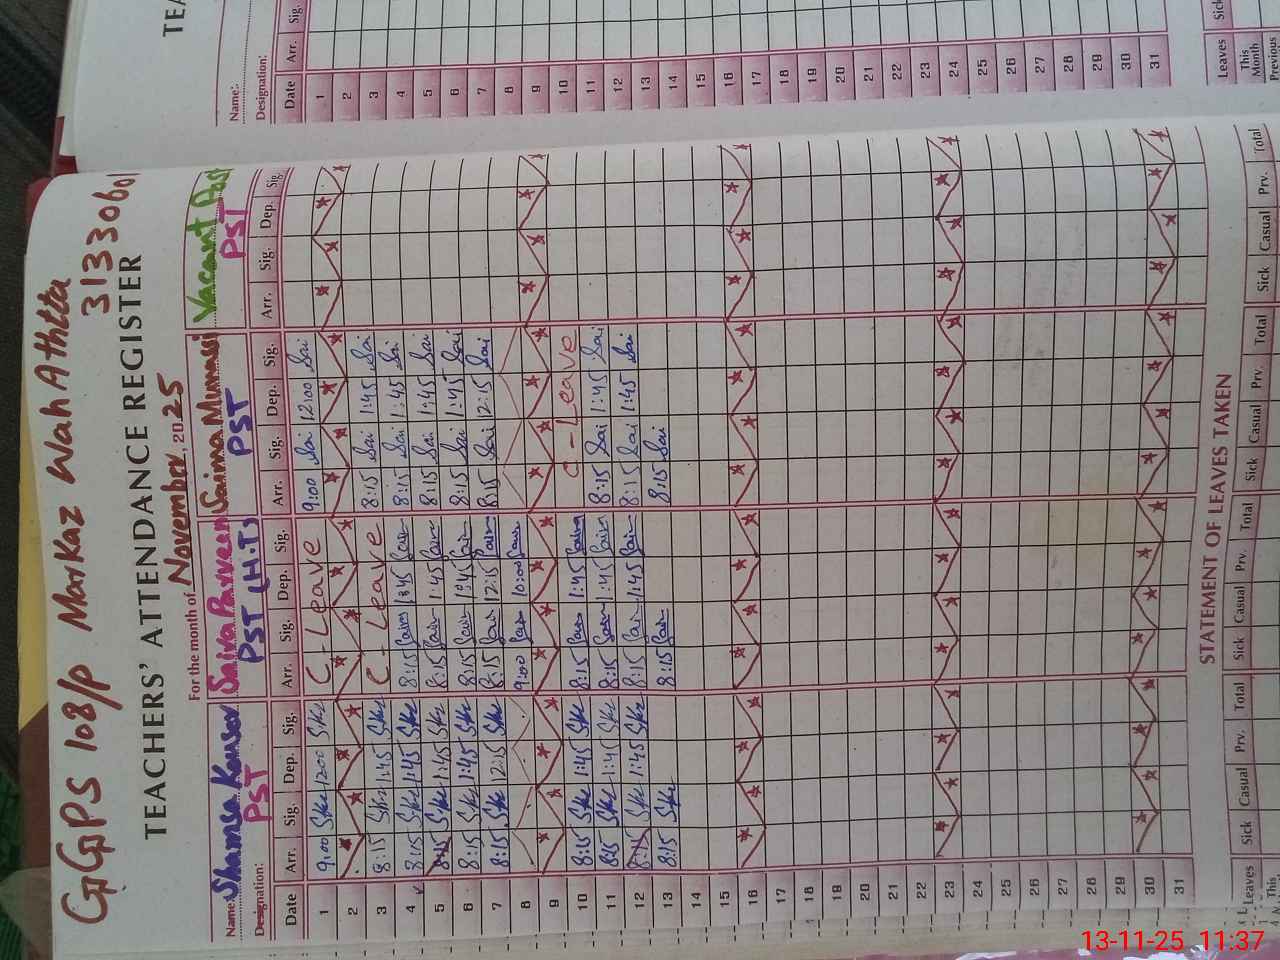 GGPS 108/P Markaz Wah Athtta
31330601
TEACHERS' ATTENDANCE REGISTER
For the month of November, 2025
Name: Shamsa Kousar Saira Parveen Saima Munassi Vacant Post
Designation: PST PST (H.T) PST PST
Date Arr. Sig. Dep. Sig. Arr. Sig. Dep. Sig. Arr. Sig. Dep. Sig. Arr. Sig. Dep. Sig.
1 9:00 Skr 1200 Skr C - Leave 9:00 Sai 12:00 Sai
2
3 8:15 Skr 1:45 Skr C - Leave 8:15 Sai 1:45 Sai
4 8:15 Skr 1:45 Skr 8:15 Sair 1:45 Sair 8:15 Sai 1:45 Sai
5 8:15 Skr 1:45 Skr 8:15 Sair 1:45 Sair 8:15 Sai 1:45 Sai
6 8:15 Skr 1:45 Skr 8:15 Sair 1:45 Sair 8:15 Sai 1:45 Sai
7 8:15 Skr 12:15 Skr 8:15 Sair 12:15 Sair 8:15 Sai 12:15 Sai
8 9:00 Sair 10:00 Sair
9
10 8:15 Skr 1:45 Skr 8:15 Sair 1:45 Sair C - Leave
11 8:15 Skr 1:45 Skr 8:15 Sair 1:45 Sair 8:15 Sai 1:45 Sai
12 8:15 Skr 1:45 Skr 8:15 Sair 1:45 Sair 8:15 Sai 1:45 Sai
13 8:15 Skr 8:15 Sair 8:15 Sai
14
15
16
17
18
19
20
21
22
23
24
25
26
27
28
29
30
31
STATEMENT OF LEAVES TAKEN
Leaves Sick Casual Prv. Total Sick Casual Prv. Total Sick Casual Prv. Total Sick Casual Prv. Total
This
TEA
Name:
Designation:
Date Arr. Sig.
1
2
3
4
5
6
7
8
9
10
11
12
13
14
15
16
17
18
19
20
21
22
23
24
25
26
27
28
29
30
31
Leaves Sick
This
Month
Previous
13-11-25 11:37